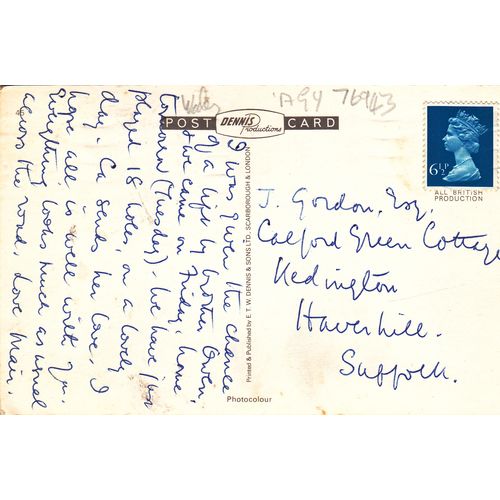 Wales
A94 76943
POST DENNIS Productions CARD
6½P
ALL BRITISH
PRODUCTION
46
I was given the chance
of a lift by brother Owen,
& we came on Friday, home
tomorrow (Tuesday). We have
played 18 holes, on a lovely
day. Ca sends her love. I
hope all is well with you.
Everything looks much as usual
across the road. Love Mair.
J. Gordon, Esq,
Calford Green Cottage
Kedington
Haverhill.
Suffolk.
Printed & Published by E. T. W. DENNIS & SONS LTD., SCARBOROUGH & LONDON
Photocolour